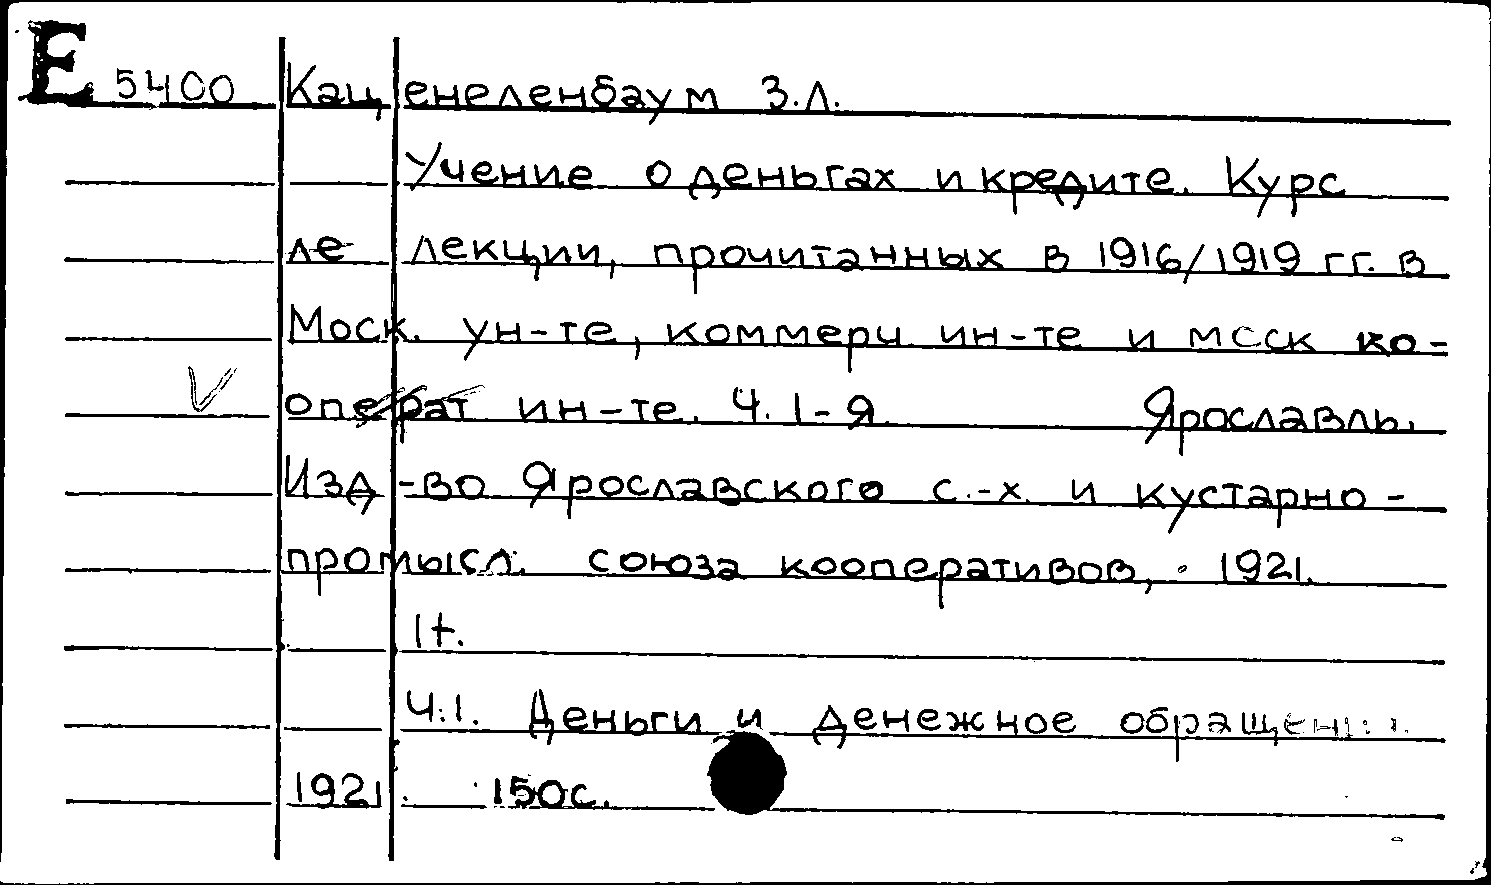 E 5400 Каценеленбаум З.Л.
Учение о деньгах и кредите. Курс
ле лекции, прочитанных в 1916/1919 гг. в
Моск. ун-те, коммерч ин-те и моск ко-
операт ин-те. Ч. 1-я. Ярославль.
Изд-во Ярославского с.-х. и кустарно-
промысл. союза кооперативов, 1921.
1т.
Ч.1. Деньги и денежное обращени
1921. 150с.